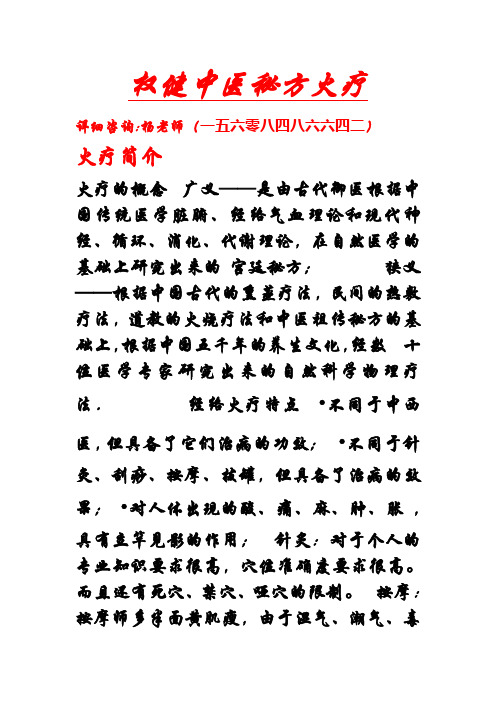 权健中医秘方火疗
详细咨询:杨老师（一五六零八四八六六四二）
火疗简介
火疗的概念 广义——是由古代御医根据中
国传统医学脏腑、经络气血理论和现代神
经、循环、消化、代谢理论，在自然医学的
基础上研究出来的 宫廷秘方； 狭义
——根据中国古代的熏蒸疗法，民间的热敷
疗法，道教的火烧疗法和中医祖传秘方的基
础上，根据中国五千年的养生文化，经数 十
位医学专家研究出来的自然科学物理疗
法. 经络火疗特点 •不同于中西
医，但具备了它们治病的功效； •不同于针
灸、刮痧、按摩、拔罐，但具备了治病的效
果； •对人体出现的酸、痛、麻、肿、胀，
具有立竿见影的作用； 针灸：对于个人的
专业知识要求很高，穴位准确度要求很高。
而且还有死穴、禁穴、哑穴的限制。 按摩：
按摩师多半面黄肌瘦，由于湿气、潮气、毒